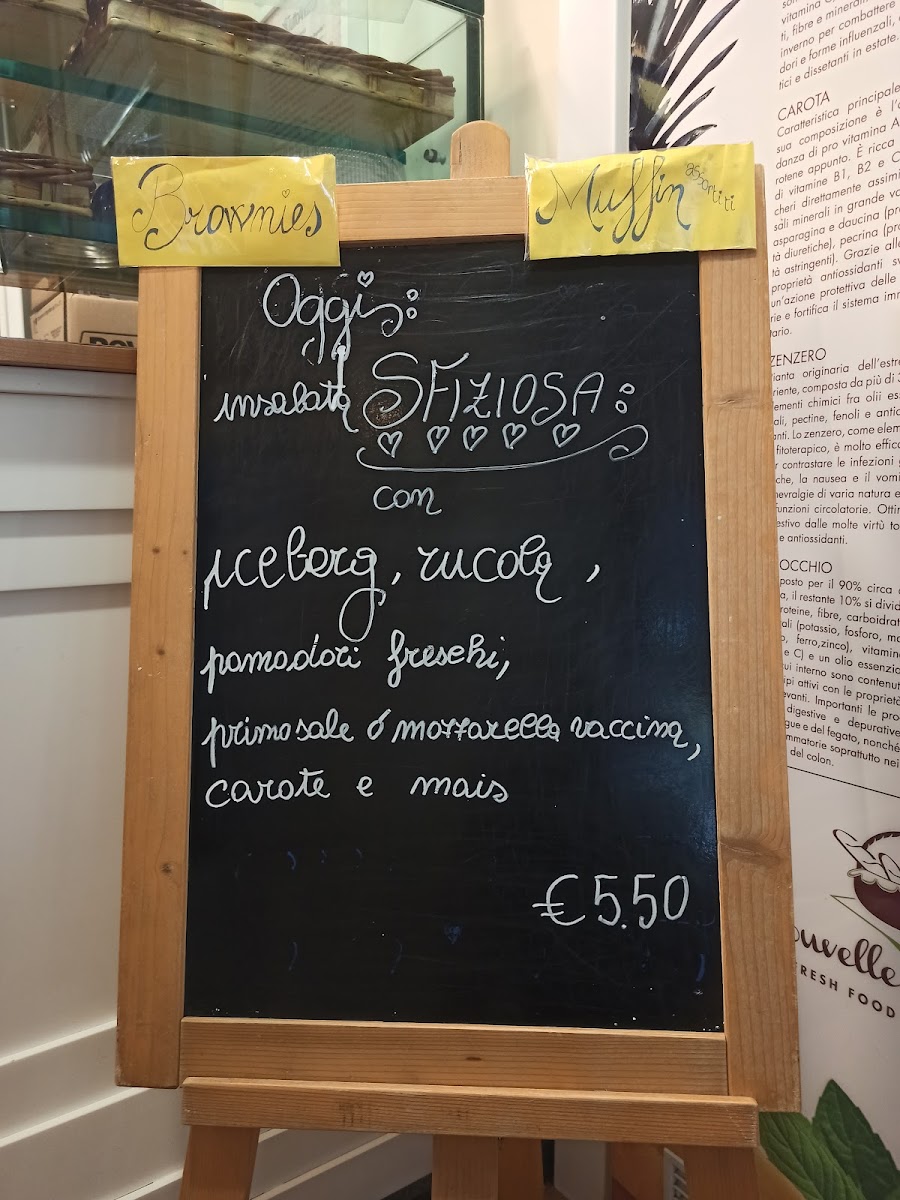 Brownies
Muffin assortiti
Oggi:
insalata SFIZIOSA:
con
iceberg, rucola,
pomodori freschi,
primosale o mozzarella vaccina,
carote e mais
€5.50
vitamina
ti, fibre e minerali
inverno per combattere
dori e forme influenzali,
tici e dissetanti in estate.
CAROTA
Caratteristica principale
sua composizione è l'
danza di pro vitamina A
rotene appunto. È ricca
di vitamine B1, B2 e C
cheri direttamente assimi
sali minerali in grande
asparagina e daucina (pr
tà diuretiche), pecrina (pr
tà astringenti). Grazie all
proprietà antiossidanti sv
un'azione protettiva delle
rie e fortifica il sistema im
tario.
ZENZERO
ianta originaria dell'estre
riente, composta da più di 3
lementi chimici fra olii ess
ali, pectine, fenoli e antio
anti. Lo zenzero, come elem
fitoterapico, è molto effica
r contrastare le infezioni
che, la nausea e il vomi
nevralgie di varia natura e
funzioni circolatorie. Ottir
estivo dalle molte virtù to
e antiossidanti.
OCCHIO
posto per il 90% circa
a, il restante 10% si divid
roteine, fibre, carboidrat
ali (potassio, fosforo, ma
o, ferro,zinco), vitamine
e C) e un olio essenzia
ui interno sono contenut
ipi attivi con le proprietà
evanti. Importanti le pro
digestive e depurative
gue e del fegato, nonché
mmatorie soprattutto nei
del colon.
ouvelle
RESH FOOD